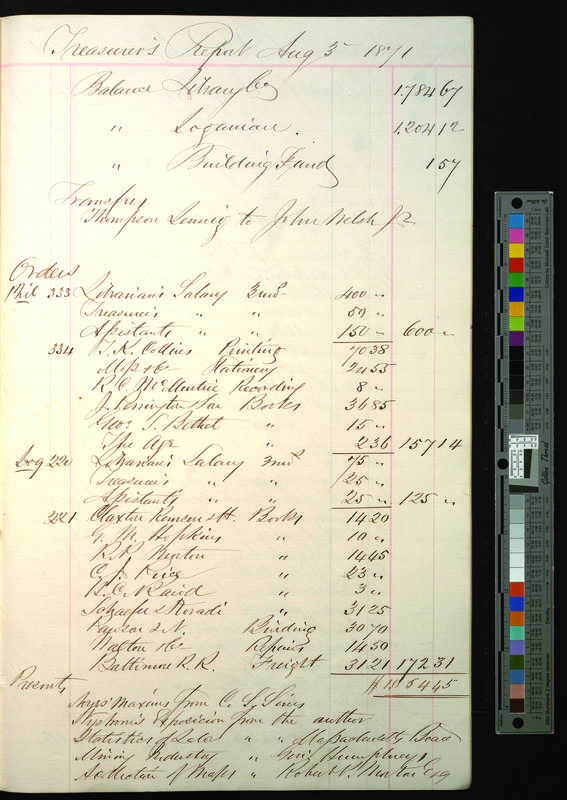 Treasurer's Report Aug 5 1871
Balance Library Co 1.784 67
" Loganian. 1.204 12
" Building Fund 1 57
Transfer
Thompson to John Welsh Jr
Orders
Phil 333 Librarian's Salary 3 mos 400 "
Treasurer's " " 50 "
Assistants " " 150 " 600 "
334 T. K. Collins Printing 70 38
Moss & Co Stationery 24 55
R. C. McMurtrie Recording 8 "
J. Penington & Son Books 36 85
Geo. T. Bethel " 15 "
The Age " 2 36 157 14
Log 220 Librarian's Salary 3 mos 75 "
Treasurer's " " 25 "
Assistants " " 25 " 125 "
221 Claxton Remsen & H. Books 14 20
G. M. Hopkins " 10 "
R. P. Morton " 14 45
C. J. " 23 "
H. C. Baird " 3 "
Schaefer & Koradi " 31 25
Pawson & N. Binding 30 70
Walton & Co Repairs 14 50
Baltimore R. R. Freight 31 21 172 31
$ 1054 45
Presents
Maxims from C. S.
Exposition from the author
Statistics of Labor " " Massachusetts Board
Mining Industry " Genl Humphreys
Collection of Maps " Robert P. Morton Esq